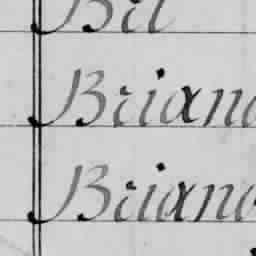 Bri
Briand
Briand